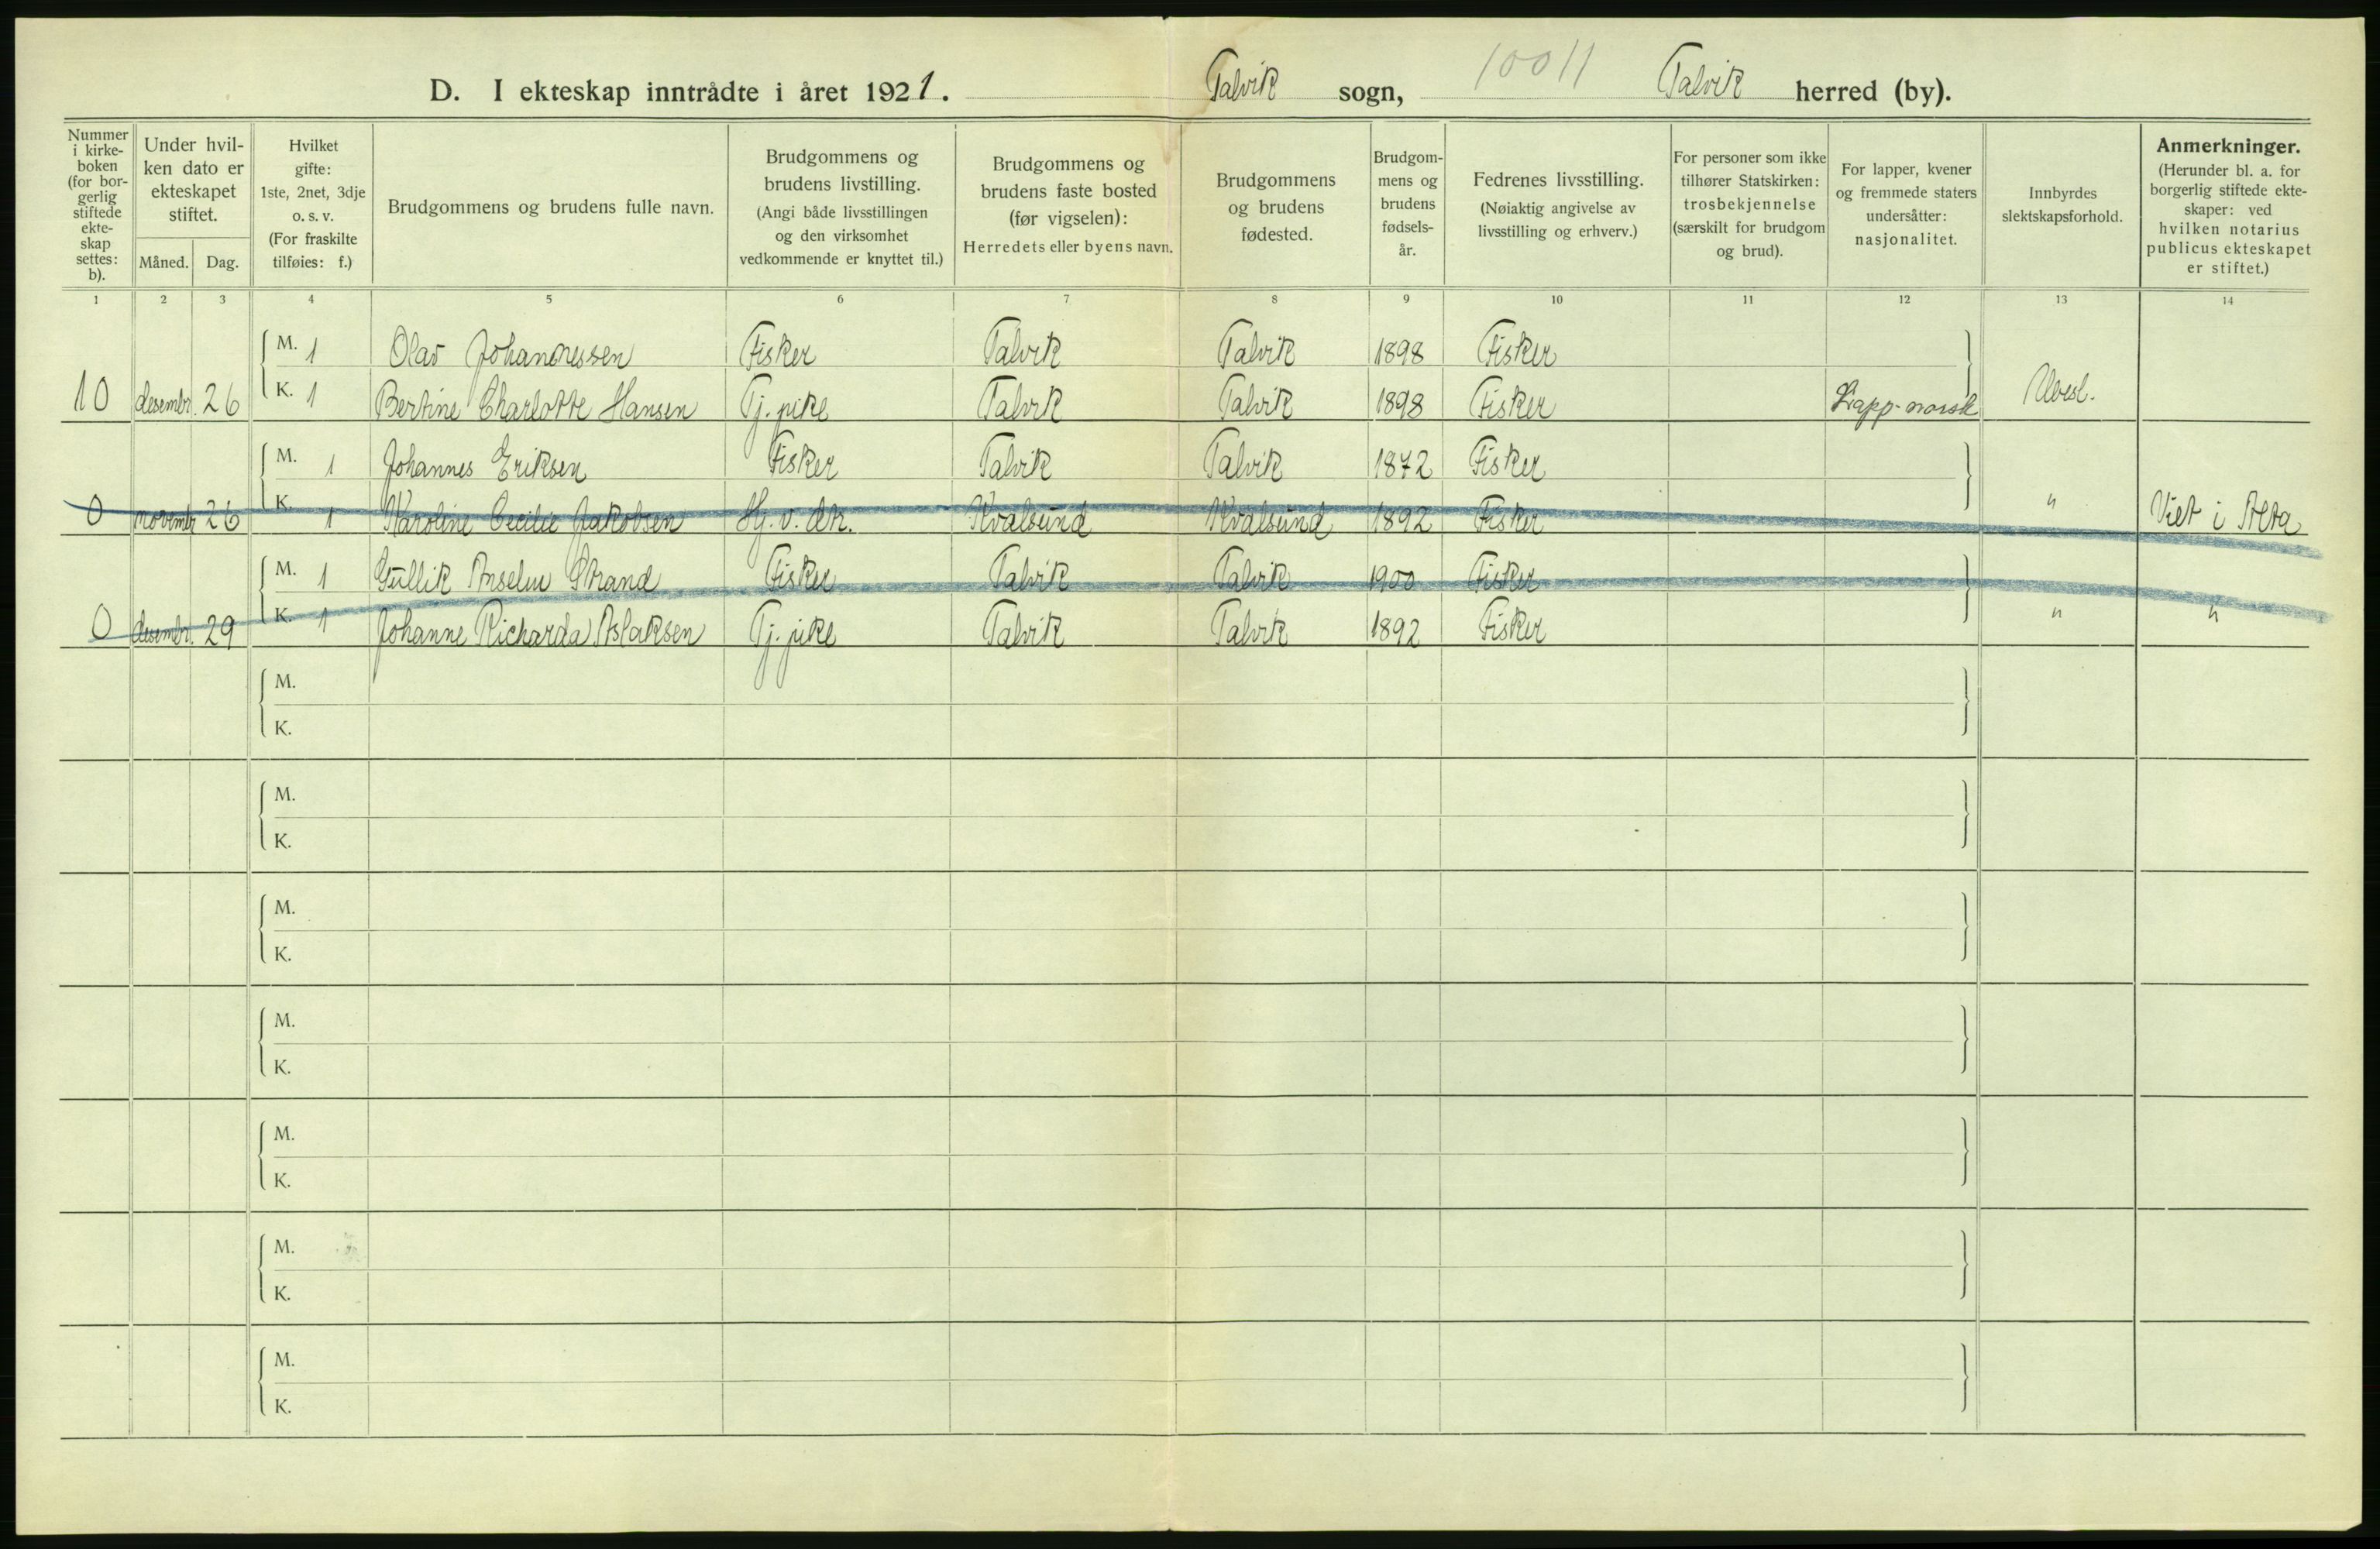 D. I ekteskap inntrådte i året 1921. Talvik sogn, 10011 Talvik herred (by).
Nummer i kirke- boken (for bor- gerlig stiftede ekte- skap settes: b).
Under hvil- ken dato er ekteskapet stiftet.
Måned. Dag.
Hvilket gifte: 1ste, 2net, 3dje o. s. v. (For fraskilte tilføies: f.)
Brudgommens og brudens fulle navn.
Brudgommens og brudens livstilling. (Angi både livsstillingen og den virksomhet vedkommende er knyttet til.)
Brudgommens og brudens faste bosted (før vigselen): Herredets eller byens navn.
Brudgommens og brudens fødested.
Brudgom- mens og brudens fødsels- år.
Fedrenes livsstilling. (Nøiaktig angivelse av livsstilling og erhverv.)
For personer som ikke tilhører Statskirken: trosbekjennelse (særskilt for brudgom og brud).
For lapper, kvener og fremmede staters undersåtter: nasjonalitet.
Innbyrdes slektskapsforhold.
Anmerkninger. (Herunder bl. a. for borgerlig stiftede ekte- skaper: ved hvilken notarius publicus ekteskapet er stiftet.)
1 2 3 4 5 6 7 8 9 10 11 12 13 14
M. 1 Olav Johannessen Fisker Talvik Talvik 1898 Fisker
10 desembr. 26 K. 1 Bertine Charlotte Hansen Tj. pike Talvik Talvik 1898 Fisker Lapp-norsk Ubesl.
M. 1 Johannes Eriksen Fisker Talvik Talvik 1872 Fisker
0 novembr 26 K. 1 Karoline Cecilie Jakobsen Hj. v. dtr. Kvalsund Kvalsund 1892 Fisker " Viet i Alta
M. 1 Gullik Anselm Strand Fisker Talvik Talvik 1900 Fisker
0 desembr. 29 K. 1 Johanne Richarda Aslaksen Tj. pike Talvik Talvik 1892 Fisker " "
M.
K.
M.
K.
M.
K.
M.
K.
M.
K.
M.
K.
M.
K.